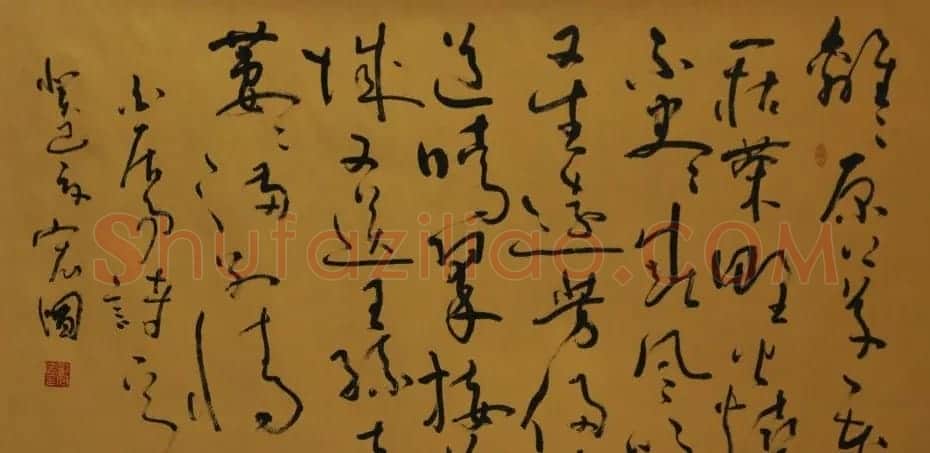 離〻原上草一歲
一枯榮野火燒
不盡春風吹
又生遠芳侵
道晴翠接荒
城又送王孫去
萋〻滿別情
白居易詩
癸巳 宏圖
Shufaziliao.COM